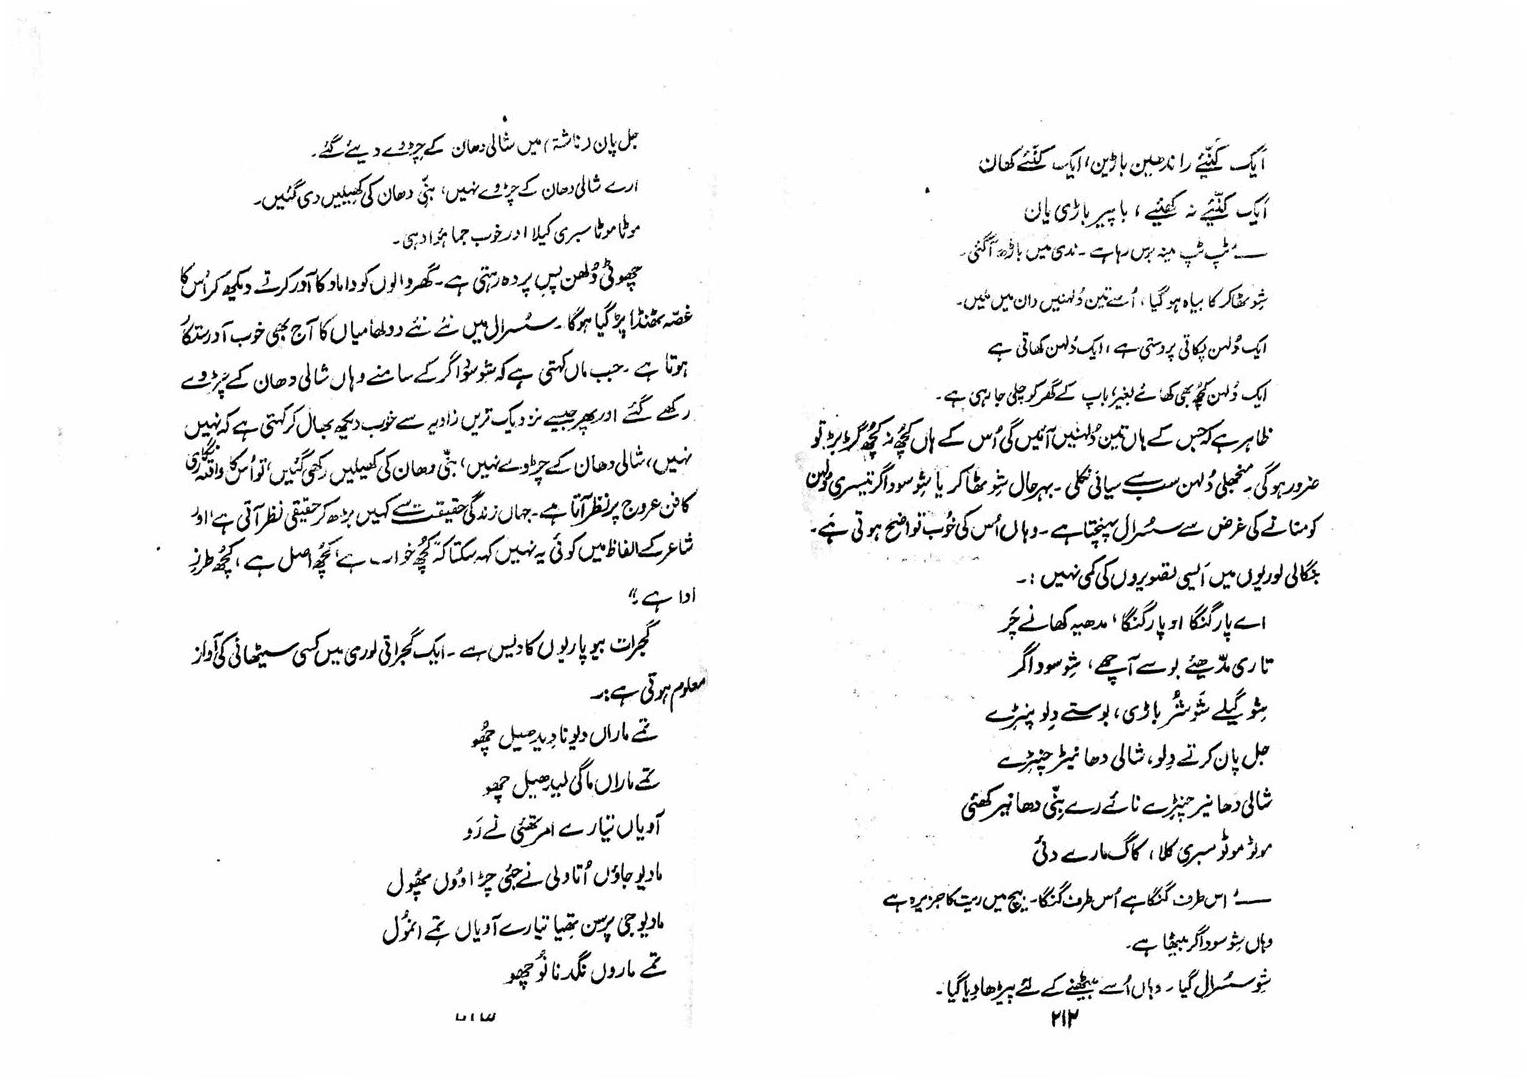 ایک کنّیٔے راندھین باڑین، ایک کنّیٔے کھان
ایک کنّیٔے نہ کھیٔنے، باپیر باڑی یان
— ٹپ ٹپ مینہ برس رہا ہے۔ ندی میں باڑھ آ گئی۔
شِو ٹھاکر کا بیاہ ہو گیا، اُسے تین دُلہنیں دان میں ملیں۔
ایک دُلہن پکاتی پروستی ہے، ایک دُلہن کھاتی ہے
ایک دُلہن کچھ بھی کھائے بغیر باپ کے گھر کو چلی جا رہی ہے۔
ظاہر ہے کہ جس کے ہاں تین دُلہنیں آئیں گی اُس کے ہاں کچھ نہ کچھ گڑبڑ تو
ضرور ہو گی۔ منجھلی دُلہن سب سے سیانی نکلی۔ بہرحال شِو ٹھاکر یا شِو سوداگر تیسری دُلہن
کو منانے کی غرض سے سسُرال پہنچتا ہے۔ وہاں اُس کی خوُب تواضع ہوتی ہَے۔
بنگالی لوریوں میں اَیسی تصویروں کی کمی نہیں :۔
اے پار گنگا او پار گنگا، مدھیہ کھانے چَر
تاری مدّھیٔے بوسے آچھے، شِو سوداگر
شِو گیلے شوشُر باڑی، بوستے دِلو پنہڑے
جل پان کرتے دِلو، شالی دھانیڑ چنہڑے
شالی دھانیر چنہڑے نائے رے بنّی دھانیر کھئی
موٹو موٹو سبری کلا، کاگ مارے دئی
— اس طرف گنگا ہے اُس طرف گنگا۔ بیچ میں ریت کا جزیرہ ہے
وہاں شِو سوداگر بیٹھا ہے۔
شِو سسُرال گیا۔ وہاں اُسے بیٹھنے کے لئے پیڑھا دیا گیا۔
۲۱۲
جل پان (ناشتہ) میں شالی دھان کے چڑوے دیئے گئے۔
ارے شالی دھان کے چڑوے نہیں، بنّی دھان کی کھیلیں دی گئیں۔
موٹا موٹا سبری کیلا اور خوب جما ہؤا دہی۔
چھوٹی دُلھن پسِ پردہ رہتی ہے۔ گھر والوں کو داماد کا آدر کرتے دیکھ کر اُس کا
غصّہ ٹھنڈا پڑ گیا ہوگا۔ سسُرال میں نئے نئے دولھا میاں کا آج بھی خوب آدر ستکار
ہوتا ہے۔ جب ماں کہتی ہے کہ شو سوداگر کے سامنے وہاں شالی دھان کے چڑوے
رکھے گئے اور پھر جیسے نزدیک ترین زاویہ سے خوب دیکھ بھال کر کہتی ہے کہ نہیں
نہیں، شالی دھان کے چڑوے نہیں، بنّی دھان کی کھیلیں رکھی گئیں، تو اُس کا واقعہ نگاری
کا فن عروج پر نظر آتا ہے۔ جہاں زندگی حقیقت سے کہیں بڑھ کر حقیقی نظر آتی ہے، اور
شاعر کے الفاظ میں کوئی یہ نہیں کہہ سکتا کہ "کچُھ خواب ہے، کچُھ اصل ہے، کچُھ طرزِ
ادا ہے۔"
گجرات بیوپاریوں کا دیس ہے۔ ایک گجراتی لوری میں کسی سیٹھانی کی آواز
معلوم ہوتی ہے:۔
تمے ماراں دیونا دیدھیل چھو
تمے ماراں ماگی لیدھیل چھو
آویاں تیارے امر تھئی نے رَو
مادیو جاؤں اُتاولی نے جئی چڑاووُں پھوُل
مادیوجی پرسن تھیا تیارے آویاں تمے انموُل
تمے ماروں نگد نانوُ چھو
۲۱۳